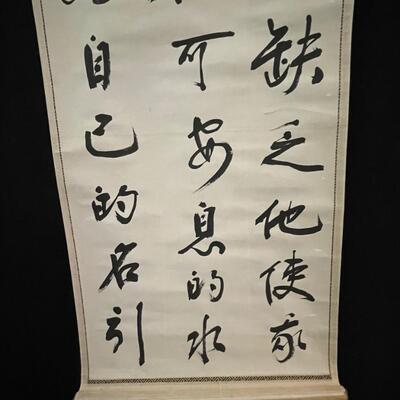 缺乏他使我
可安息的水
自己的名引